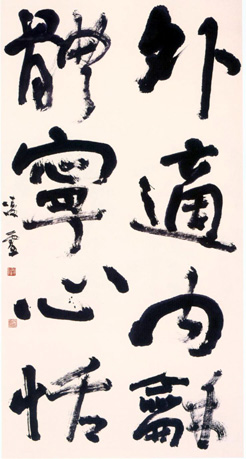 外適内龢
體寧心恬